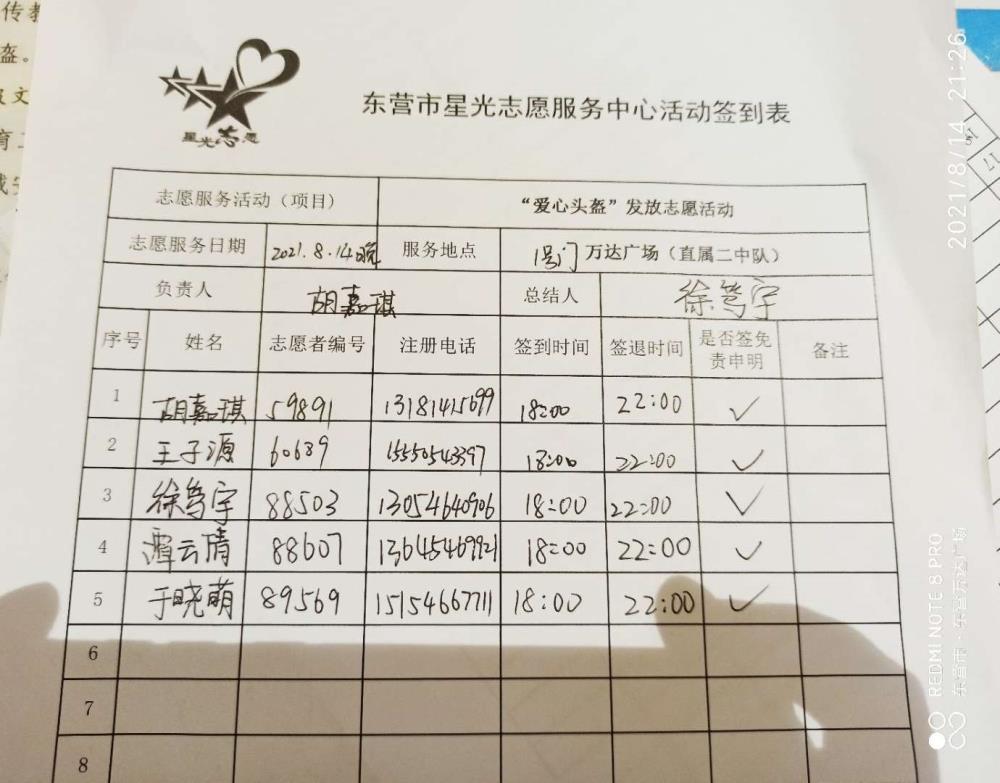 传教
盔。
文
育
星光志愿
东营市星光志愿服务中心活动签到表
志愿服务活动（项目） “爱心头盔”发放志愿活动
志愿服务日期 2021.8.14晚 服务地点 1号门 万达广场（直属二中队）
负责人 胡嘉琪 总结人 徐笃宇
序号 姓名 志愿者编号 注册电话 签到时间 签退时间 是否签免责申明 备注
1 胡嘉琪 59891 13181415699 18:00 22:00 ✓
2 王子源 60689 15550543397 18:00 22:00 ✓
3 徐笃宇 88503 13054640906 18:00 22:00 ✓
4 潭云倩 88607 13645469921 18:00 22:00 ✓
5 于晓萌 89569 15154667711 18:00 22:00 ✓
6
7
8
2021/8/14 21:26
REDMI NOTE 8 PRO
东营市·东营万达广场